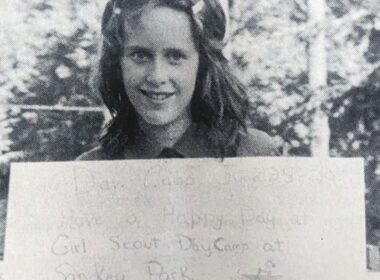 Day Camp June 25-29
Have a Happy Day at
Girl Scout Day Camp at
Sankey Park